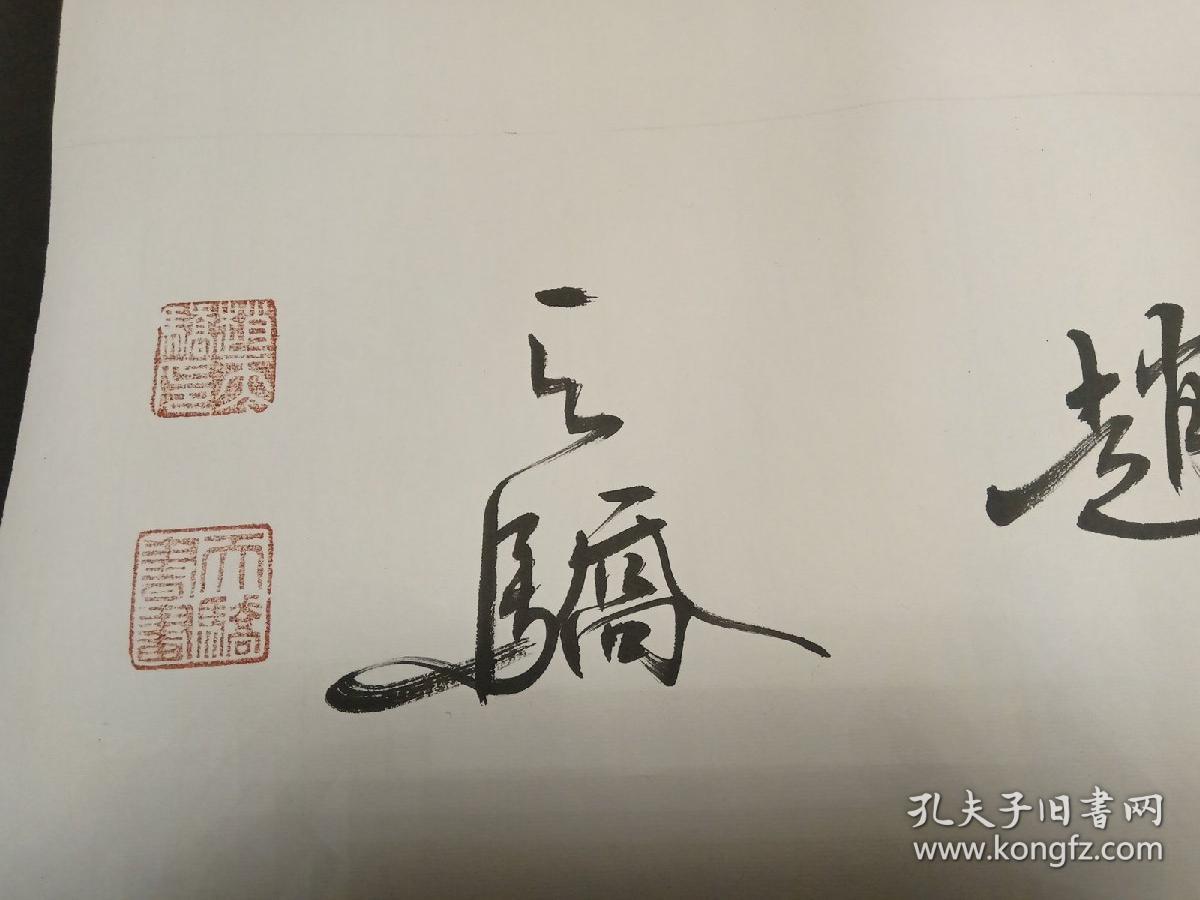 趙
天驕
趙天驕印
天驕書畫
孔夫子旧书网
www.kongfz.com